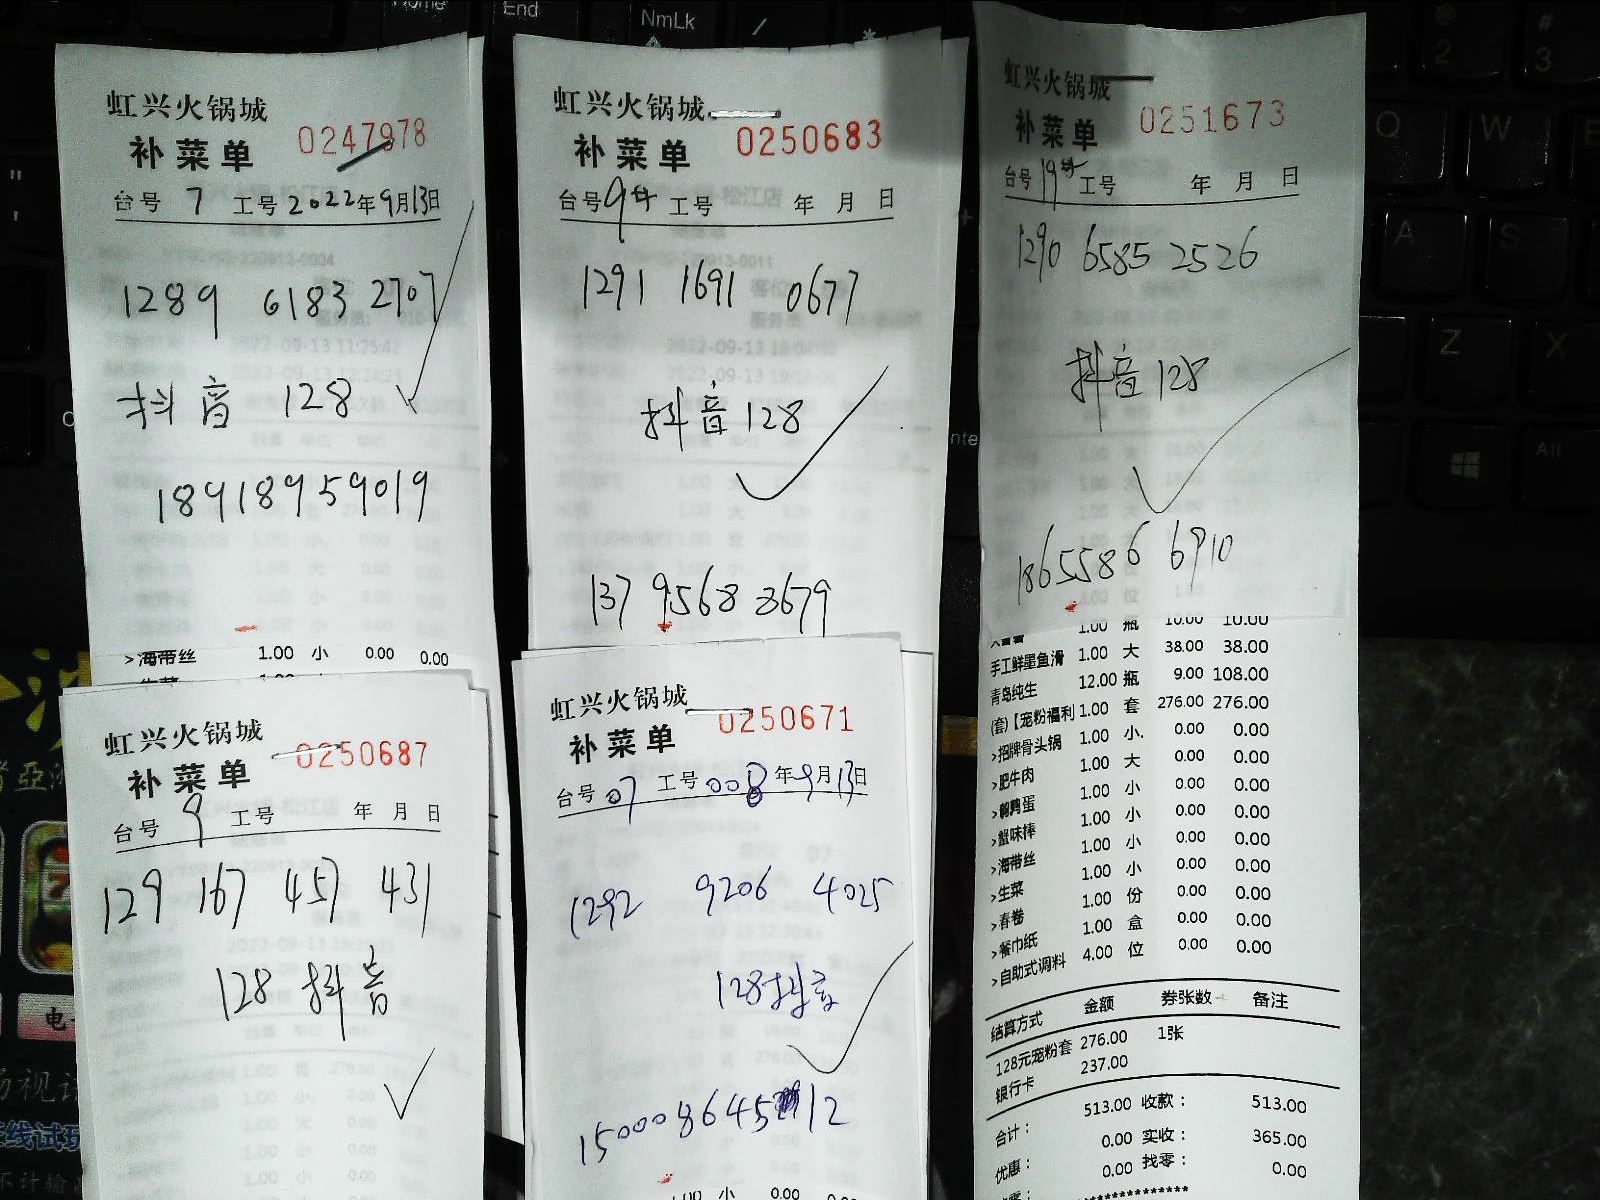 虹兴火锅城
补菜单 0247978
台号 7 工号 2022年9月13日
1289 6183 2707
抖音 128
18918959019
>海带丝 1.00 小 0.00 0.00
虹兴火锅城
补菜单 0250683
台号 9 工号 年 月 日
1291 1691 0677
抖音 128
137 9568 3679
虹兴火锅城
补菜单 0251673
台号 19 工号 年 月 日
1290 6585 2526
抖音 128
1865586 6910
1.00 瓶 10.00 10.00
手工鲜墨鱼滑 1.00 大 38.00 38.00
青岛纯生 12.00 瓶 9.00 108.00
(套)【宠粉福利 1.00 套 276.00 276.00
>招牌骨头锅 1.00 小 0.00 0.00
>肥牛肉 1.00 大 0.00 0.00
>鹌鹑蛋 1.00 小 0.00 0.00
>蟹味棒 1.00 小 0.00 0.00
>海带丝 1.00 小 0.00 0.00
>生菜 1.00 小 0.00 0.00
>春卷 1.00 份 0.00 0.00
>餐巾纸 1.00 盒 0.00 0.00
>自助式调料 4.00 位 0.00 0.00
结算方式 金额 券张数 备注
128元宠粉套 276.00 1张
银行卡 237.00
合计： 513.00 收款： 513.00
优惠： 0.00 实收： 365.00
0.00 找零： 0.00
虹兴火锅城
补菜单 0250687
台号 9 工号 年 月 日
129 167 457 431
128 抖音
虹兴火锅城
补菜单 0250671
台号 07 工号 008 年 9月13日
1292 9206 4025
128抖音
15000864512
1.00 小 0.00 0.00
Home
End
NmLk
/
*
Q
W
A
S
Z
X
Alt
@
2
#
3